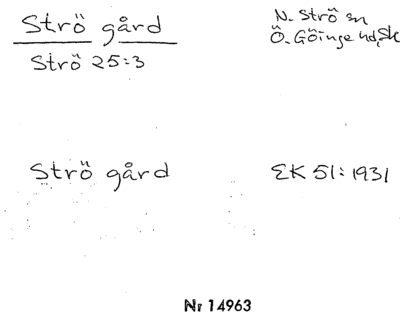 Strö gård
N. Strö sn
Strö 25:3
Ö. Göinge hd, Sk
Strö gård
EK 51: 1931
Nr 14963